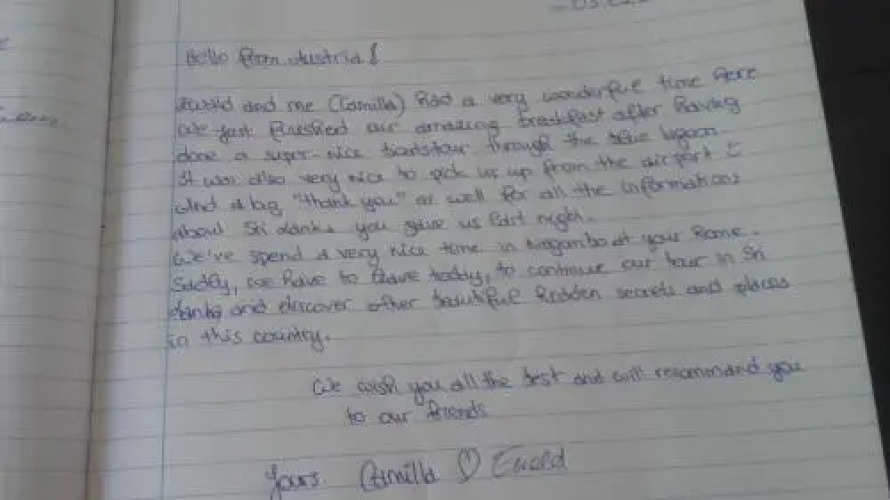 Hello from Austria!
Ewald and me (Camilla) had a very wonderful time here
We just finished our amazing breakfast after having
done a super-nice boatstour through the blue lagoon
It was also very nice to pick us up from the airport :)
And a big "thank you" as well for all the informations
about Sri Lanka you give us last night.
We've spend a very nice time in Nagambo at your home.
Sadly, we have to leave today, to continue our tour in Sri
Lanka and discover other beautiful hidden secrets and places
in this country.
We wish you all the best and will recommand you
to our friends
Yours Camilla ♡ Ewald